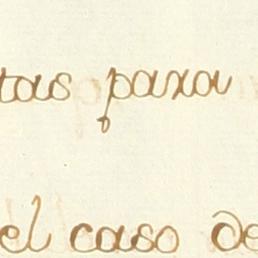 tas para
el caso de